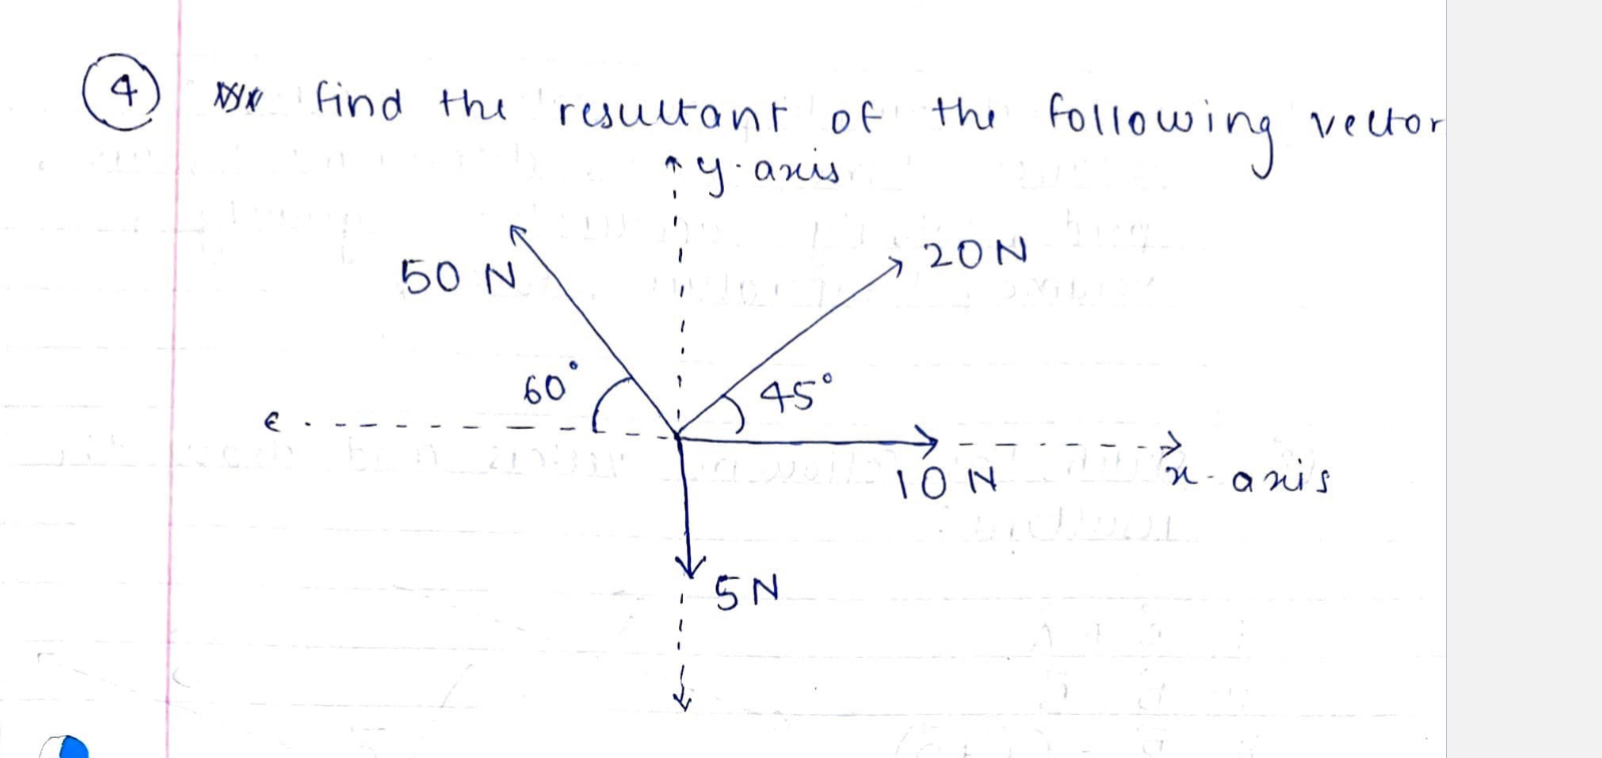 4 find the resultant of the following vector
y-axis
50 N
20 N
60°
45°
10 N
x-axis
5 N